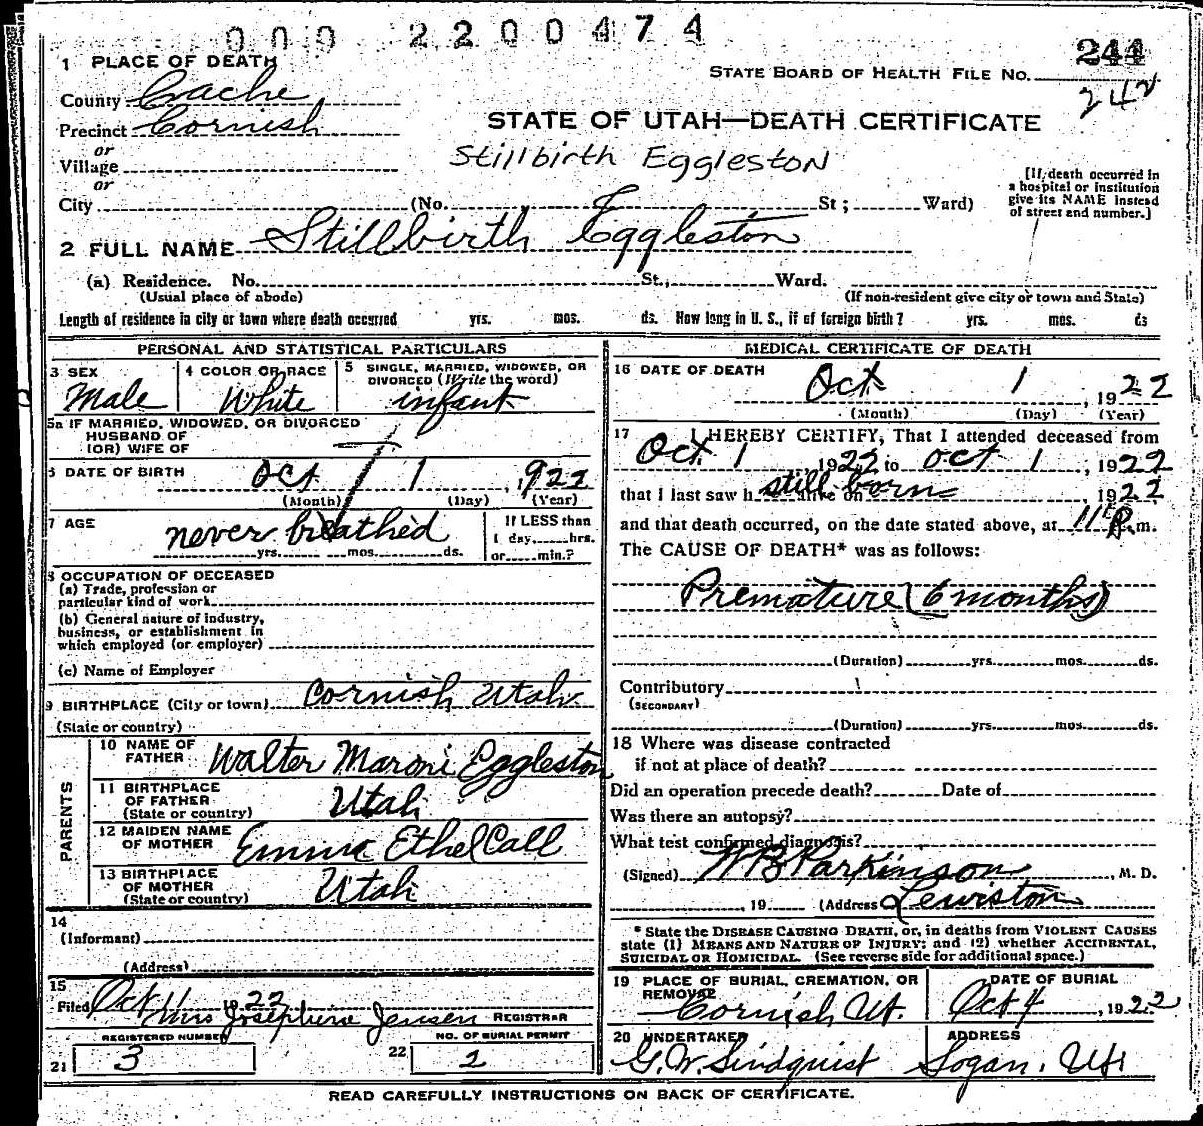 000 2200474
1 PLACE OF DEATH
STATE BOARD OF HEALTH FILE NO. 244
242
County Cache
Precinct Cornish
or
Village
or
City (No. St; Ward)
STATE OF UTAH—DEATH CERTIFICATE
Stillbirth Eggleston
[If death occurred in
a hospital or institution
give its NAME instead
of street and number.]
2 FULL NAME Stillbirth Eggleston
(a) Residence. No. St., Ward.
(Usual place of abode) (If non-resident give city or town and State)
Length of residence in city or town where death occurred yrs. mos. ds. How long in U. S., if of foreign birth? yrs. mos. ds
PERSONAL AND STATISTICAL PARTICULARS
3 SEX
Male
4 COLOR OR RACE
White
5 SINGLE, MARRIED, WIDOWED, OR
DIVORCED (Write the word)
infant
5a IF MARRIED, WIDOWED, OR DIVORCED
HUSBAND OF
(OR) WIFE OF
6 DATE OF BIRTH Oct 1, 1922
(Month) (Day) (Year)
7 AGE
never breathed
yrs. mos. ds.
If LESS than
1 day, hrs.
or min.?
8 OCCUPATION OF DECEASED
(a) Trade, profession or
particular kind of work
(b) General nature of industry,
business, or establishment in
which employed (or employer)
(c) Name of Employer
9 BIRTHPLACE (City or town) Cornish Utah.
(State or country)
PARENTS
10 NAME OF
FATHER Walter Maroni Eggleston
11 BIRTHPLACE
OF FATHER
(State or country) Utah
12 MAIDEN NAME
OF MOTHER Emma Ethel Call
13 BIRTHPLACE
OF MOTHER
(State or country) Utah
14
(Informant)
(Address)
15
Filed Oct 11 1922
Mrs Josephine Jensen REGISTRAR
REGISTERED NUMBER NO. OF BURIAL PERMIT
21 3 22 2
MEDICAL CERTIFICATE OF DEATH
16 DATE OF DEATH
Oct 1, 1922
(Month) (Day) (Year)
17 I HEREBY CERTIFY, That I attended deceased from
Oct 1 1922 to Oct 1, 1922
that I last saw h alive on still born 1922
and that death occurred, on the date stated above, at 11 P. m.
The CAUSE OF DEATH* was as follows:
Premature (6 months)
(Duration) yrs. mos. ds.
Contributory
(SECONDARY)
(Duration) yrs. mos. ds.
18 Where was disease contracted
if not at place of death?
Did an operation precede death? Date of
Was there an autopsy?
What test confirmed diagnosis?
(Signed) W B Parkinson, M. D.
, 19 (Address Lewiston
* State the DISEASE CAUSING DEATH, or, in deaths from VIOLENT CAUSES
state (1) MEANS AND NATURE OF INJURY; and (2) whether ACCIDENTAL,
SUICIDAL OR HOMICIDAL. (See reverse side for additional space.)
19 PLACE OF BURIAL, CREMATION, OR
REMOVAL
Cornish Ut.
DATE OF BURIAL
Oct 4, 1922
20 UNDERTAKER
G. W. Lindquist
ADDRESS
Logan, Ut
READ CAREFULLY INSTRUCTIONS ON BACK OF CERTIFICATE.